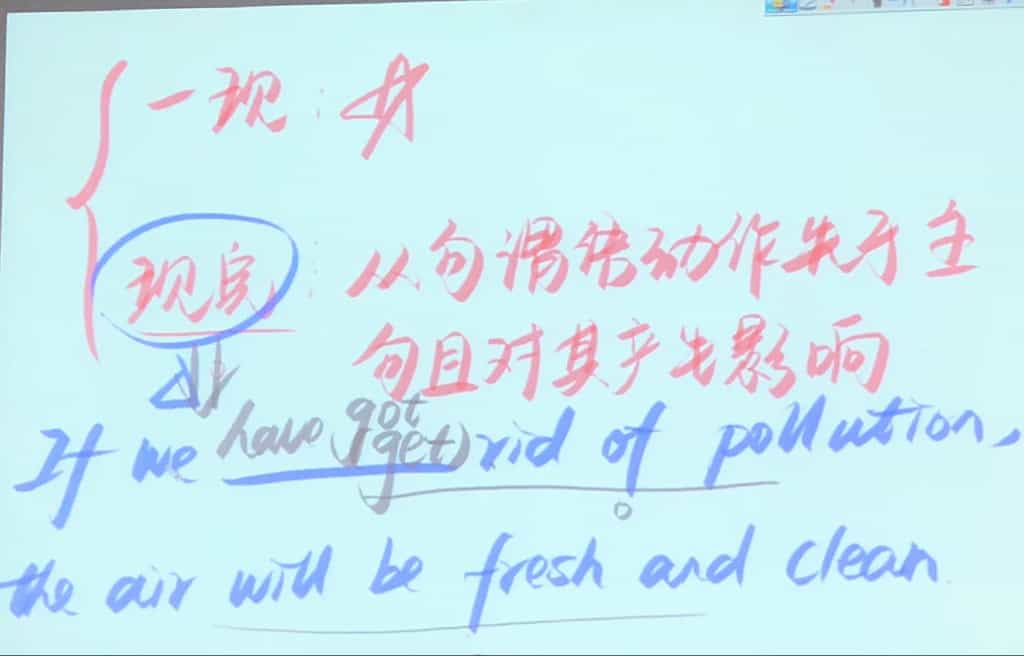 一现：
现完：从句谓语动作先于主
句且对其产生影响
got
If we have (get) rid of pollution,
the air will be fresh and clean.